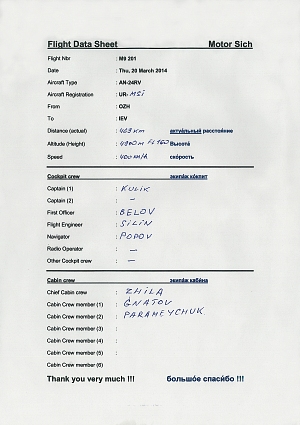 Flight Data Sheet Motor Sich
Flight Nbr : M9 201
Date : Thu, 20 March 2014
Aircraft Type : AN-24RV
Aircraft Registration : UR- MSI
From : OZH
To : IEV
Distance (actual) : 429 km актуáльный расстояние
Altitude (Height) : 4900m FL160 Высотá
Speed : 400 км/h скóрость
Cockpit crew экипáж кóкпит
Captain (1) : KULIK
Captain (2) : –
First Officer : BELOV
Flight Engineer : SILIN
Navigator : POPOV
Radio Operator : –
Other Cockpit crew : –
Cabin crew экипáж кабéна
Chief Cabin crew : ZHILA
Cabin Crew member (1) : GNATOV
Cabin Crew member (2) : PARAMEYCHUK
Cabin Crew member (3) :
Cabin Crew member (4) :
Cabin Crew member (5) :
Cabin Crew member (6)
Thank you very much !!! большóе спасибо !!!